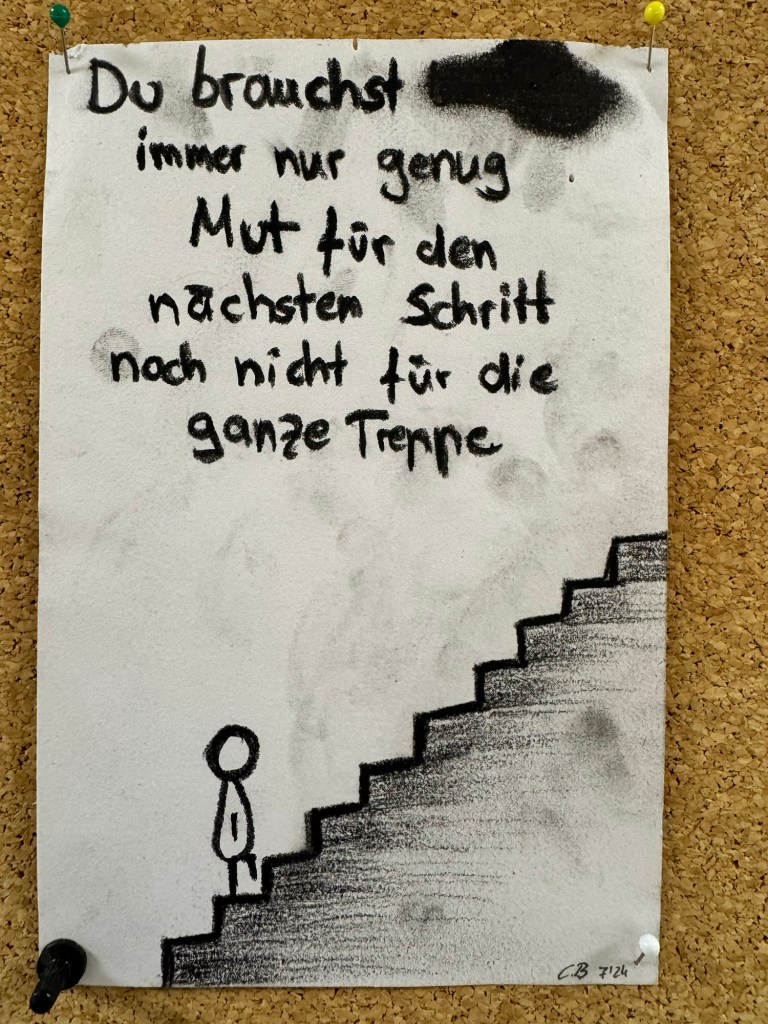 Du brauchst
immer nur genug
Mut für den
nächsten Schritt
noch nicht für die
ganze Treppe
C.B 7'24